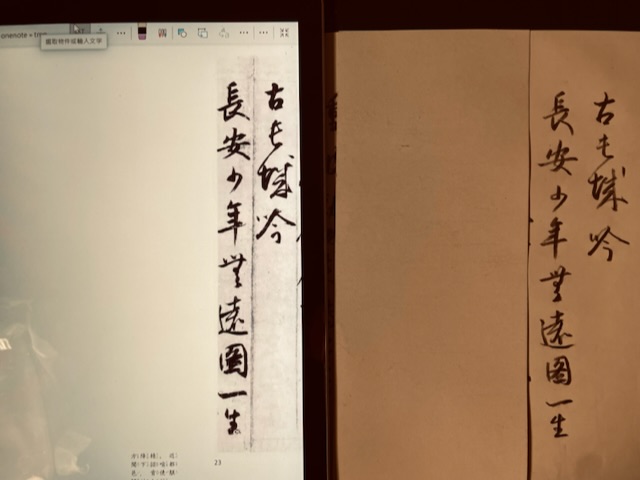 onenote
選取物件或輸入文字
古長城吟
長安少年無遠圖一生
23
古長城吟
長安少年無遠圖一生